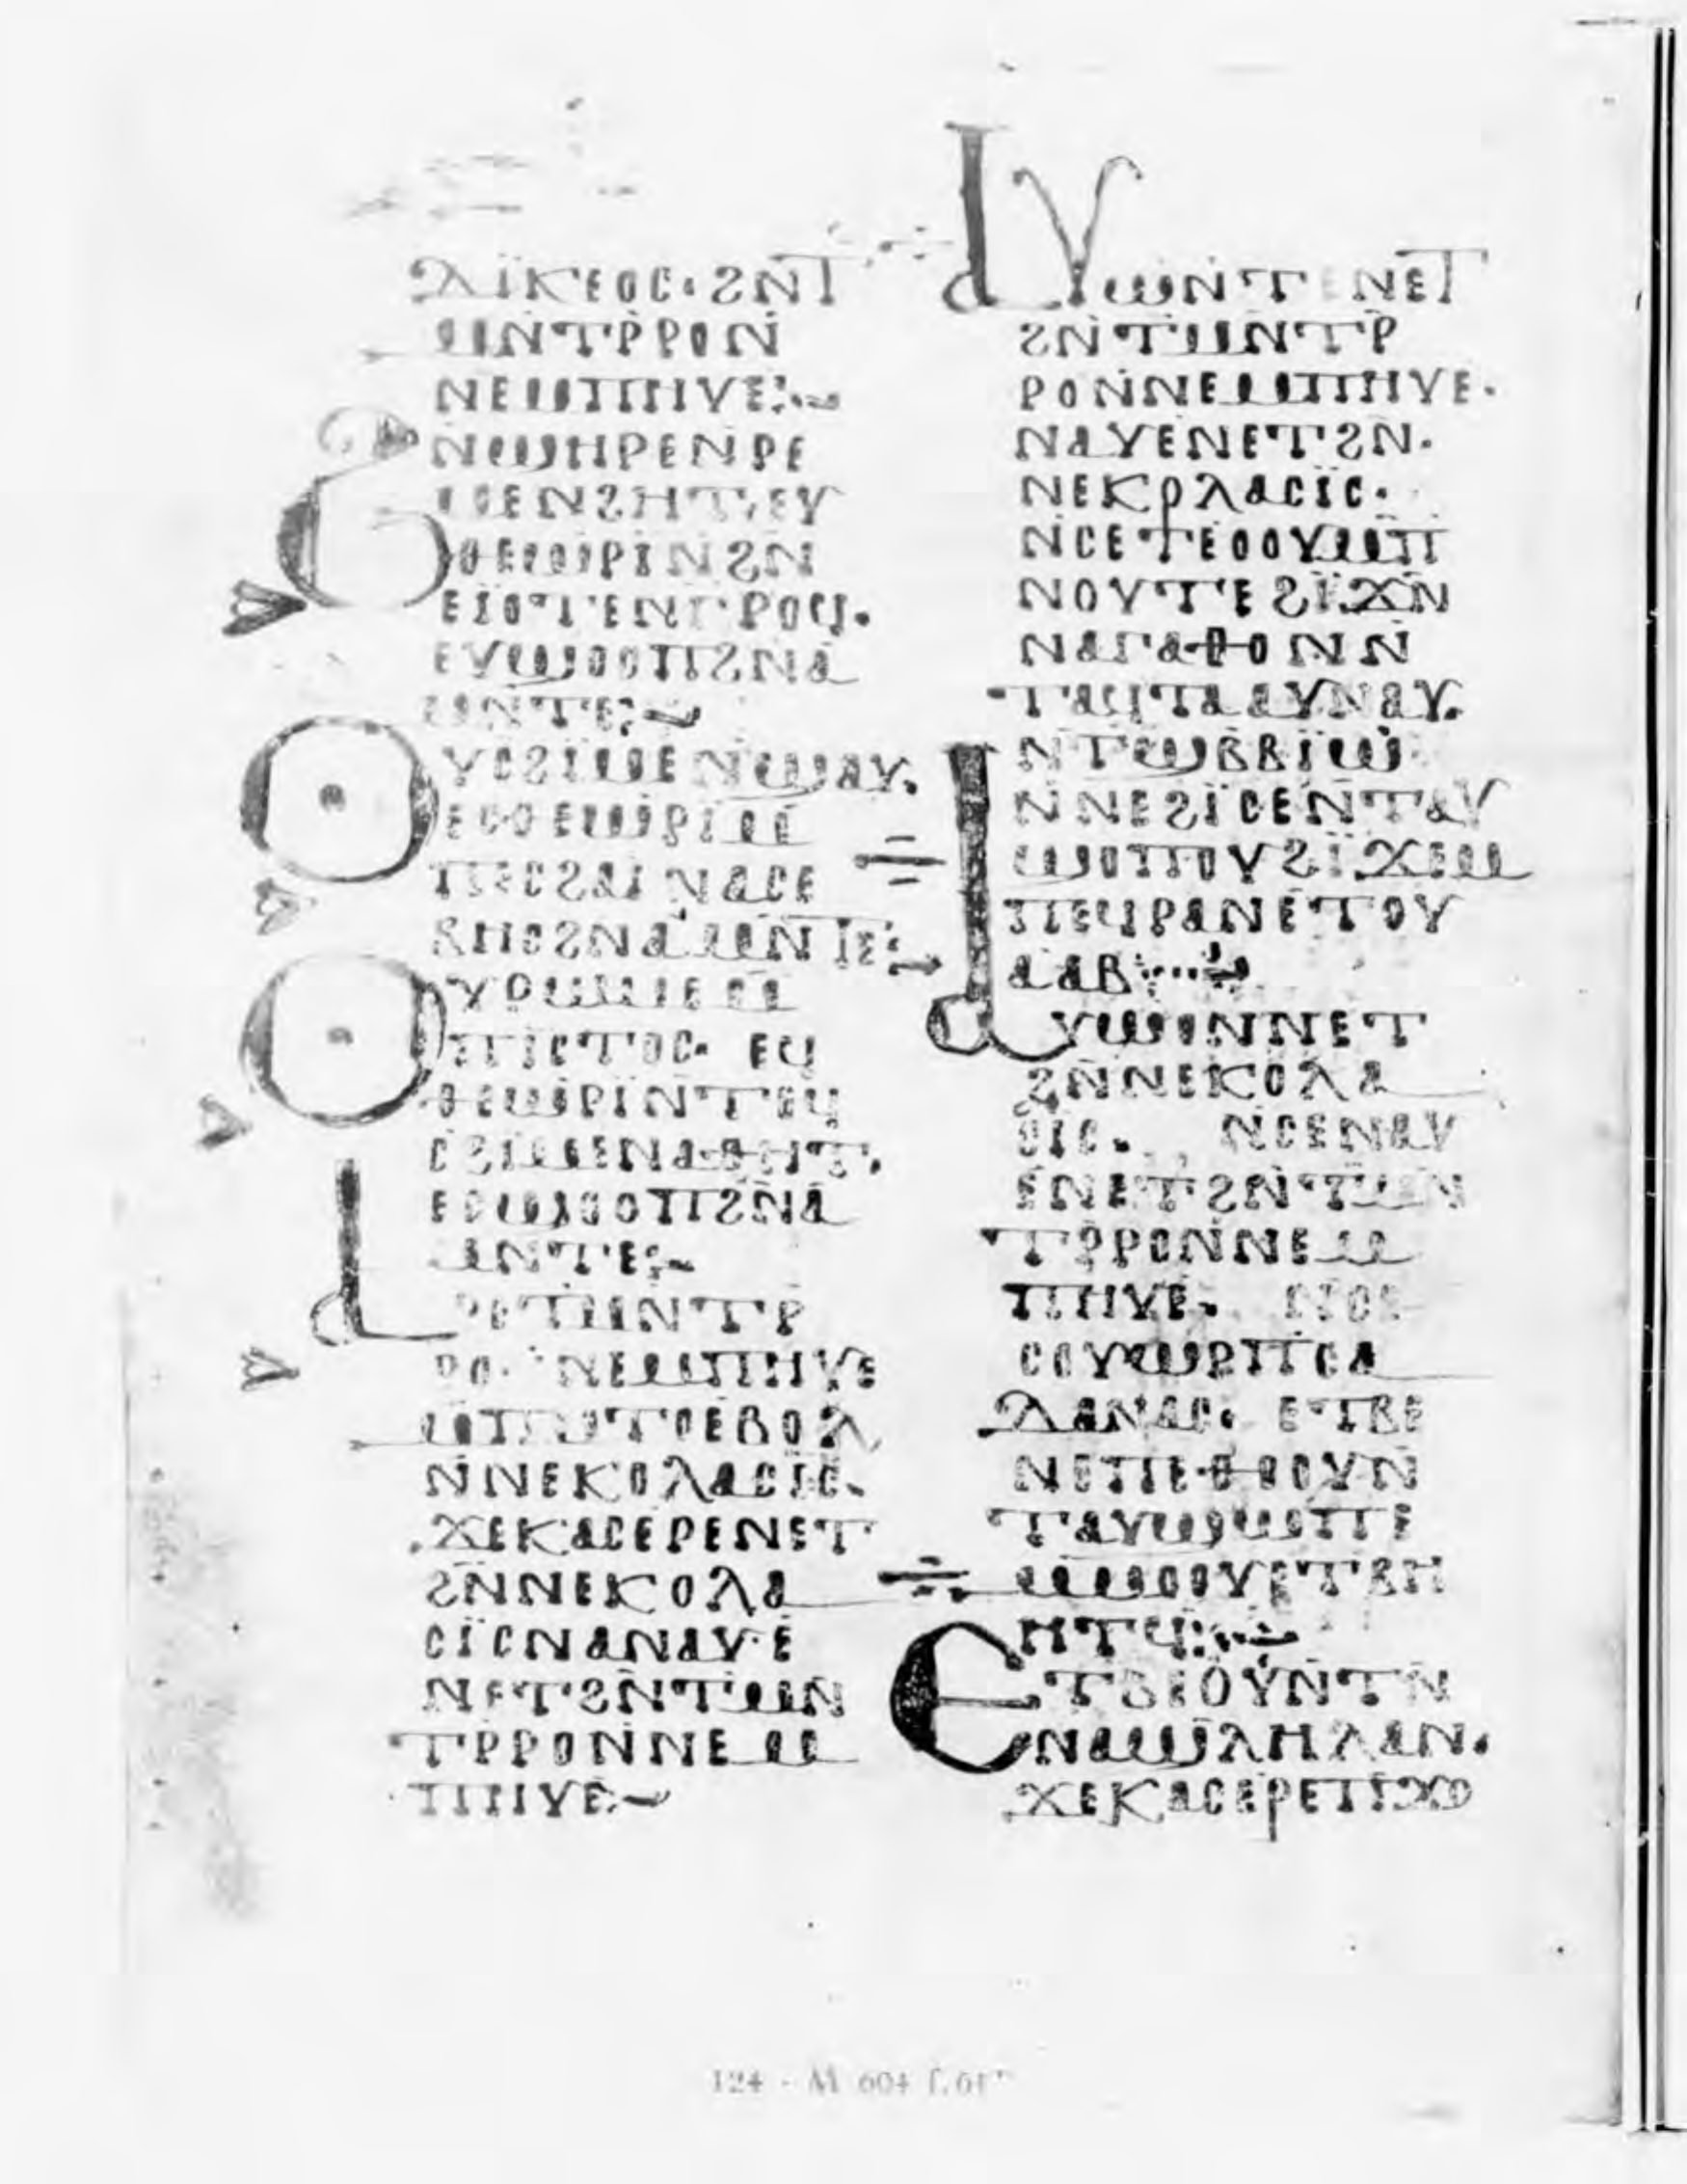 ⲇⲓ̈ⲕⲉⲟⲥ· ϩⲛⲧ
ⲙⲛⲧⲣ̄ⲣⲟⲛ
ⲛⲉⲙⲡⲏⲩⲉ:~
ⲛϣⲏⲣⲉⲛⲣⲉ
ⲑⲉⲱⲣⲓⲛϩⲛ
ⲉⲓ̈ⲟⲧⲉⲛⲣⲉϥ·
ⲉⲩϣⲟⲟⲡϩⲛⲁ
ⲙⲛⲧⲉ:~
ⲟⲩⲥϩⲓⲙⲉⲛϣⲁⲩ·
ⲉⲥⲑⲉⲱⲣⲓⲙ
ⲡⲉⲥϩⲁⲓ ⲛⲁⲥⲉ
ⲃⲏⲥϩⲛⲁⲙⲛⲧⲉ:
ⲟⲩⲣⲱⲙⲉⲙ
ⲡⲓⲥⲧⲟⲥ· ⲉϥ
ⲑⲉⲱⲣⲓⲛⲧⲉϥ
ⲥϩⲓⲙⲉⲛⲁⲑⲏⲧ·
ⲉⲥϣⲟⲟⲡϩⲛ̄ⲁ
ⲙⲛⲧⲉ:~
ⲁⲣⲉⲧⲙⲛⲧⲣ̄
ⲣⲟ· ⲛⲉⲙⲡⲏⲩⲉ
ⲙⲡⲙ̄ⲧⲟⲉⲃⲟⲗ
ⲛ̇ⲛⲉⲕⲟⲗⲁⲥⲓⲥ·
ϫⲉⲕⲁⲥⲉⲣⲉⲛⲉⲧ
ϩⲛ̄ⲛⲉⲕⲟⲗⲁ
ⲥⲓ̈ⲥⲛⲁⲛⲁⲩⲉ̇
ⲛⲉⲧϩⲛ̄ⲧⲙⲛ̄
ⲧⲣ̄ⲣⲟⲛ̇ⲛⲉⲙ
ⲡⲏⲩⲉ:~
ⲁⲩⲱⲛ̇ⲧⲉⲛⲉⲧ
ϩⲛ̄ⲧⲙⲛ̄ⲧⲣ̄
ⲣⲟⲛ̇ⲛⲉⲙⲡⲏⲩⲉ·
ⲛⲁⲩⲉⲛⲉⲧϩⲛ·
ⲛⲉⲕⲟⲗⲁⲥⲓ̈ⲥ·
ⲛ̇ⲥⲉϯⲉⲟⲟⲩⲙ̄ⲡ
ⲛⲟⲩⲧⲉϩⲓ̈ϫⲛ̄
ⲛⲁⲅⲁⲑⲟⲛⲛ̇
ⲧⲁϥⲧⲁⲁⲩⲛⲁⲩ·
ⲛ̇ⲧϣⲃⲃⲓ̈ⲱ
ⲛ̇ⲛⲉϩⲓ̈ⲥⲉⲛ̇ⲧⲁⲩ
ϣⲟⲡⲟⲩϩⲓ̈ϫⲉⲙ
ⲡⲉϥⲣⲁⲛⲉⲧⲟⲩ
ⲁⲁⲃ:
ⲁⲩⲱⲟⲛⲛⲉⲧ
ϩⲛ̄ⲛⲉⲕⲟⲗⲁ
ⲥⲓⲥ· ⲛ̇ⲥⲉⲛⲁⲩ
ⲉ̇ⲛⲉⲧϩⲛ̄ⲧⲙⲛ
ⲧⲣ̄ⲣⲟⲛ̇ⲛⲉⲙ
ⲡⲏⲩⲉ· ⲛⲥⲉ
ⲥⲟⲩⲱⲣ̄ⲡⲥⲁ
ⲇⲁⲛⲁⲥ· ⲉⲧⲃⲉ
ⲛⲉⲡⲉⲑⲟⲟⲩⲛ̇
ⲧⲁⲩϣⲱⲡⲉ
ⲙⲙⲟⲟⲩⲉⲧⲃⲏ
ⲏⲧϥ:
ⲉⲧⲃⲉⲟⲩⲛ̄ⲧⲛ̄
ⲛⲁϣⲗⲏⲗⲁⲛ·
ϫⲉⲕⲁⲥⲉⲣⲉⲡϫⲟ